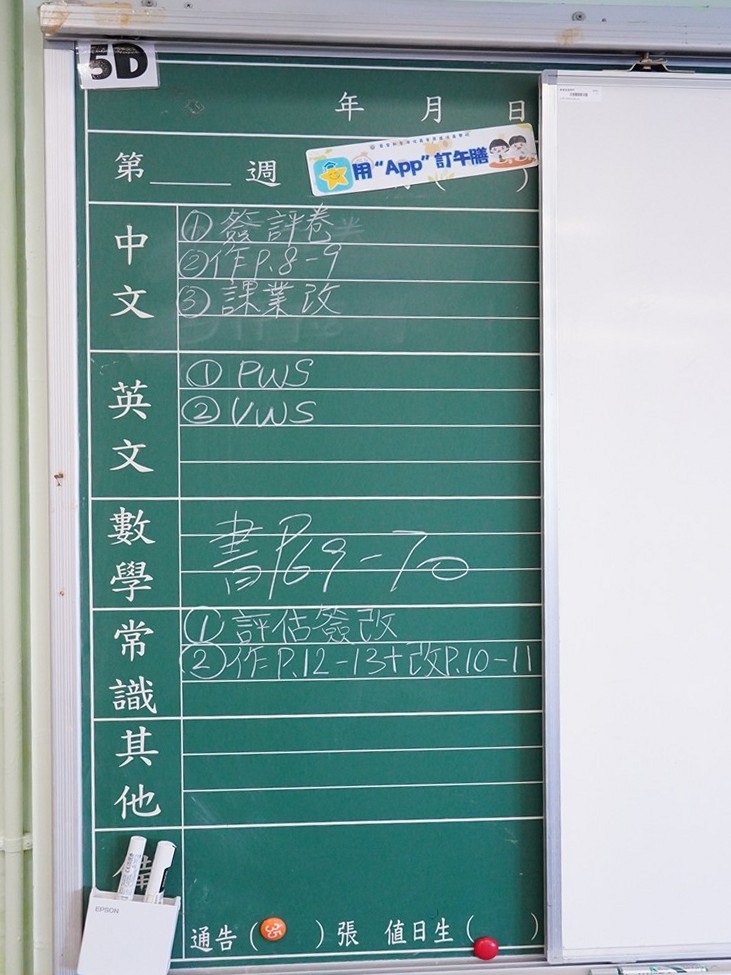 5D
年 月 日
用“App”訂午膳
第____週
中文
①簽評卷
②作P.8-9
③課業改
英文
①PWS
②VWS
數學
書P69-70
常識
①評估簽改
②作P.12-13+改P.10-11
其他
EPSON
通告( )張 值日生( )